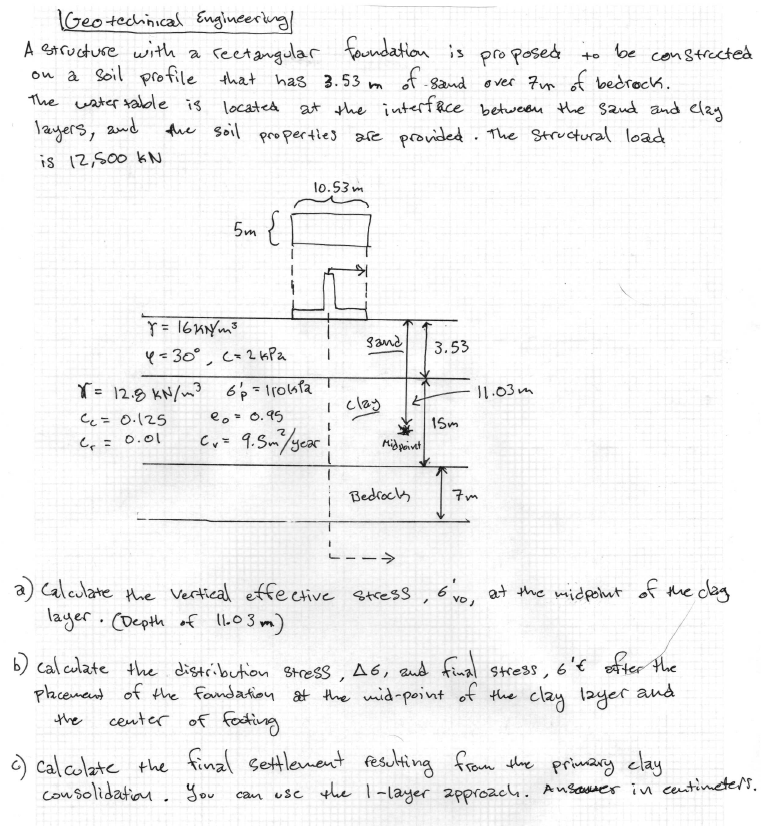 Geotechnical Engineering
A structure with a rectangular foundation is proposed to be constructed
on a soil profile that has 3.53 m of sand over 7m of bedrock.
The water table is located at the interface between the sand and clay
layers, and the soil properties are provided. The structural load
is 12,500 kN
10.53 m
5m
γ = 16 kN/m³
φ = 30°, C = 2 kPa
Sand
3.53
γ = 12.8 kN/m³ σ'p = 110 kPa
Cc = 0.125 e₀ = 0.95
Cr = 0.01 Cv = 9.5m²/year
clay
11.03 m
15m
Midpoint
Bedrock
7m
a) Calculate the vertical effective stress, σ'vo, at the midpoint of the clag
layer. (Depth of 11.03 m)
b) calculate the distribution stress, Δσ, and final stress, σ'f after the
placement of the foundation at the mid-point of the clay layer and
the center of footing
c) calculate the final settlement resulting from the primary clay
consolidation. You can use the 1-layer approach. Answer in centimeters.